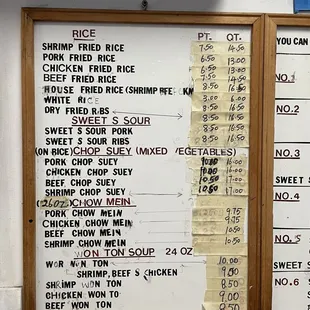 RICE PT. QT.
SHRIMP FRIED RICE 7.50 14.50
PORK FRIED RICE 6.50 13.00
CHICKEN FRIED RICE 6.50 13.00
BEEF FRIED RICE 7.50 14.50
HOUSE FRIED RICE (SHRIMP BEE CK 8.50 16.50
WHITE RICE 3.00 6.00
DRY FRIED RIBS 8.50 16.50
SWEET S SOUR
SWEET S SOUR PORK 8.50 16.50
SWEET S SOUR RIBS 8.50 16.50
(ON RICE) CHOP SUEY (MIXED VEGETABLES)
PORK CHOP SUEY 16.00
CHICKEN CHOP SUEY 16.00
BEEF CHOP SUEY 10.50 17.00
SHRIMP CHOP SUEY 10.50 17.00
CHOW MEIN
PORK CHOW MEIN 9.75
CHICKEN CHOW MEIN 9.75
BEEF CHOW MEIN 10.50
SHRIMP CHOW MEIN 10.50
WON TON SOUP 24 OZ
WOR WON TON 10.00
SHRIMP, BEEF S CHICKEN
SHRIMP WON TON
CHICKEN WON TO 9.00
BEEF WON TON
YOU CAN
NO.1
NO.2
NO.3
SWEET S
NO.4
NO.5
SWEET S
NO.6